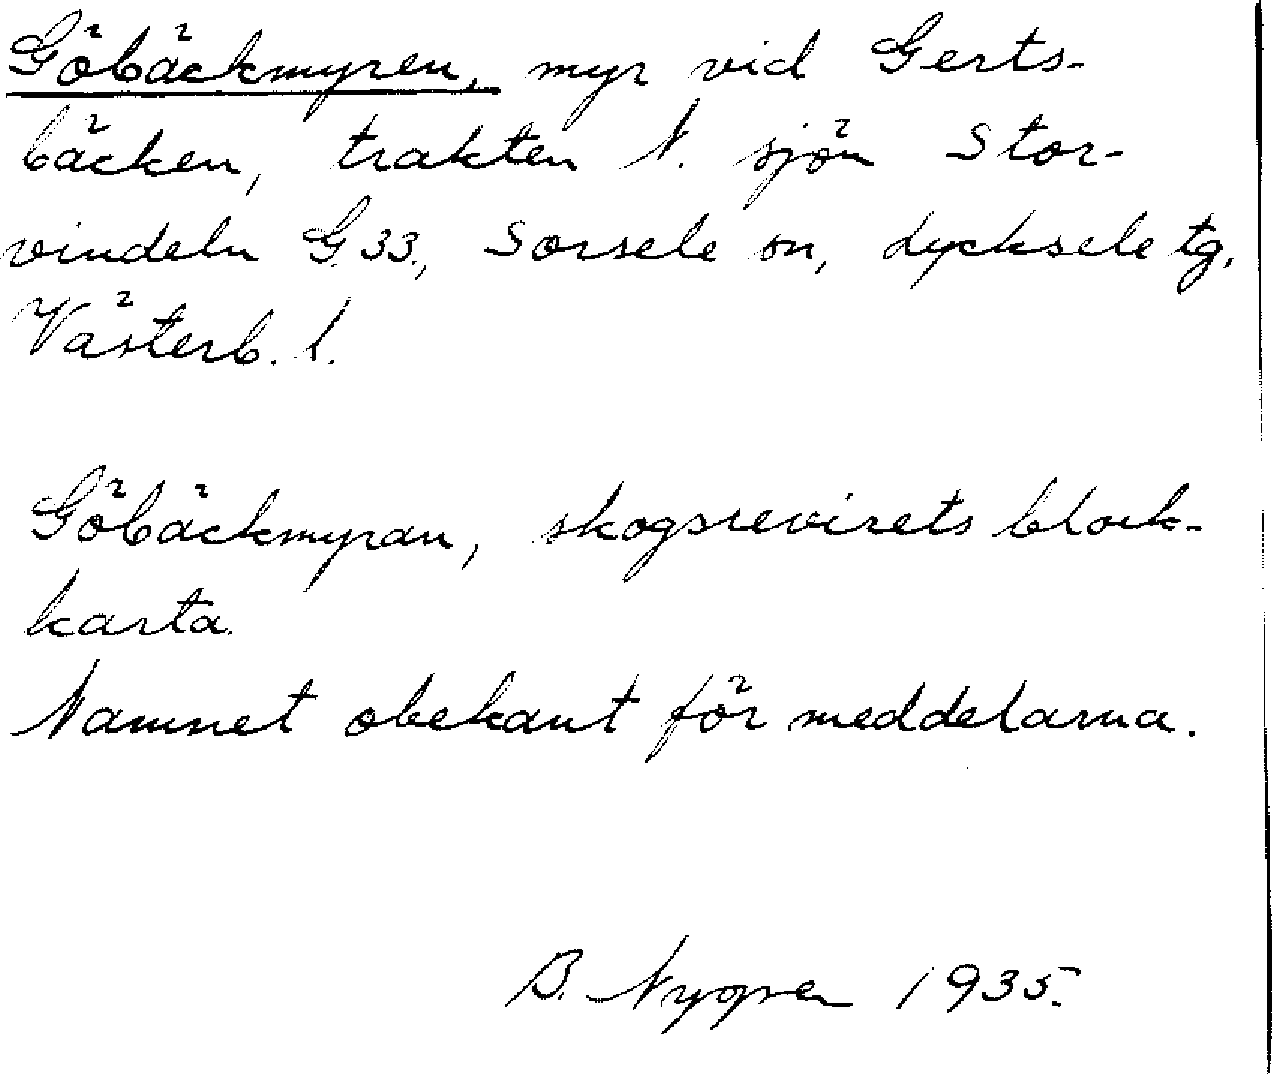 Göbäckmyren, myr vid Gerts-
bäcken, trakten N. sjön Stor-
vindeln G.33., Sorsele sn, Lycksele tg.
Västerb. l.
Göbäckmyran, skogsrevirets block-
karta.
Namnet obekant för meddelarna.
B. Nygren 1935.